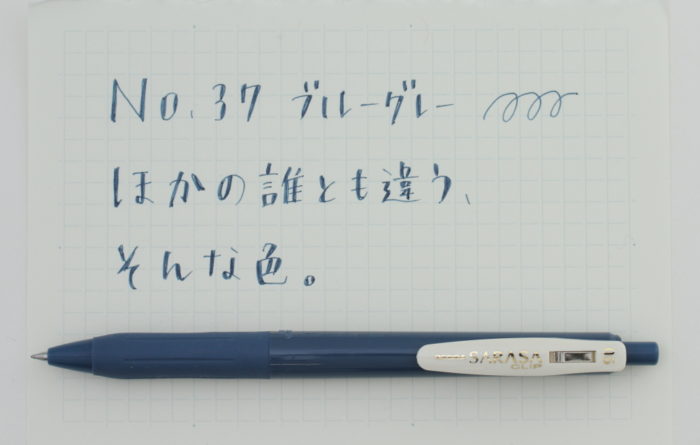 No.37 ブルーグレー
ほかの誰とも違う、
そんな色。
SARASA
CLIP